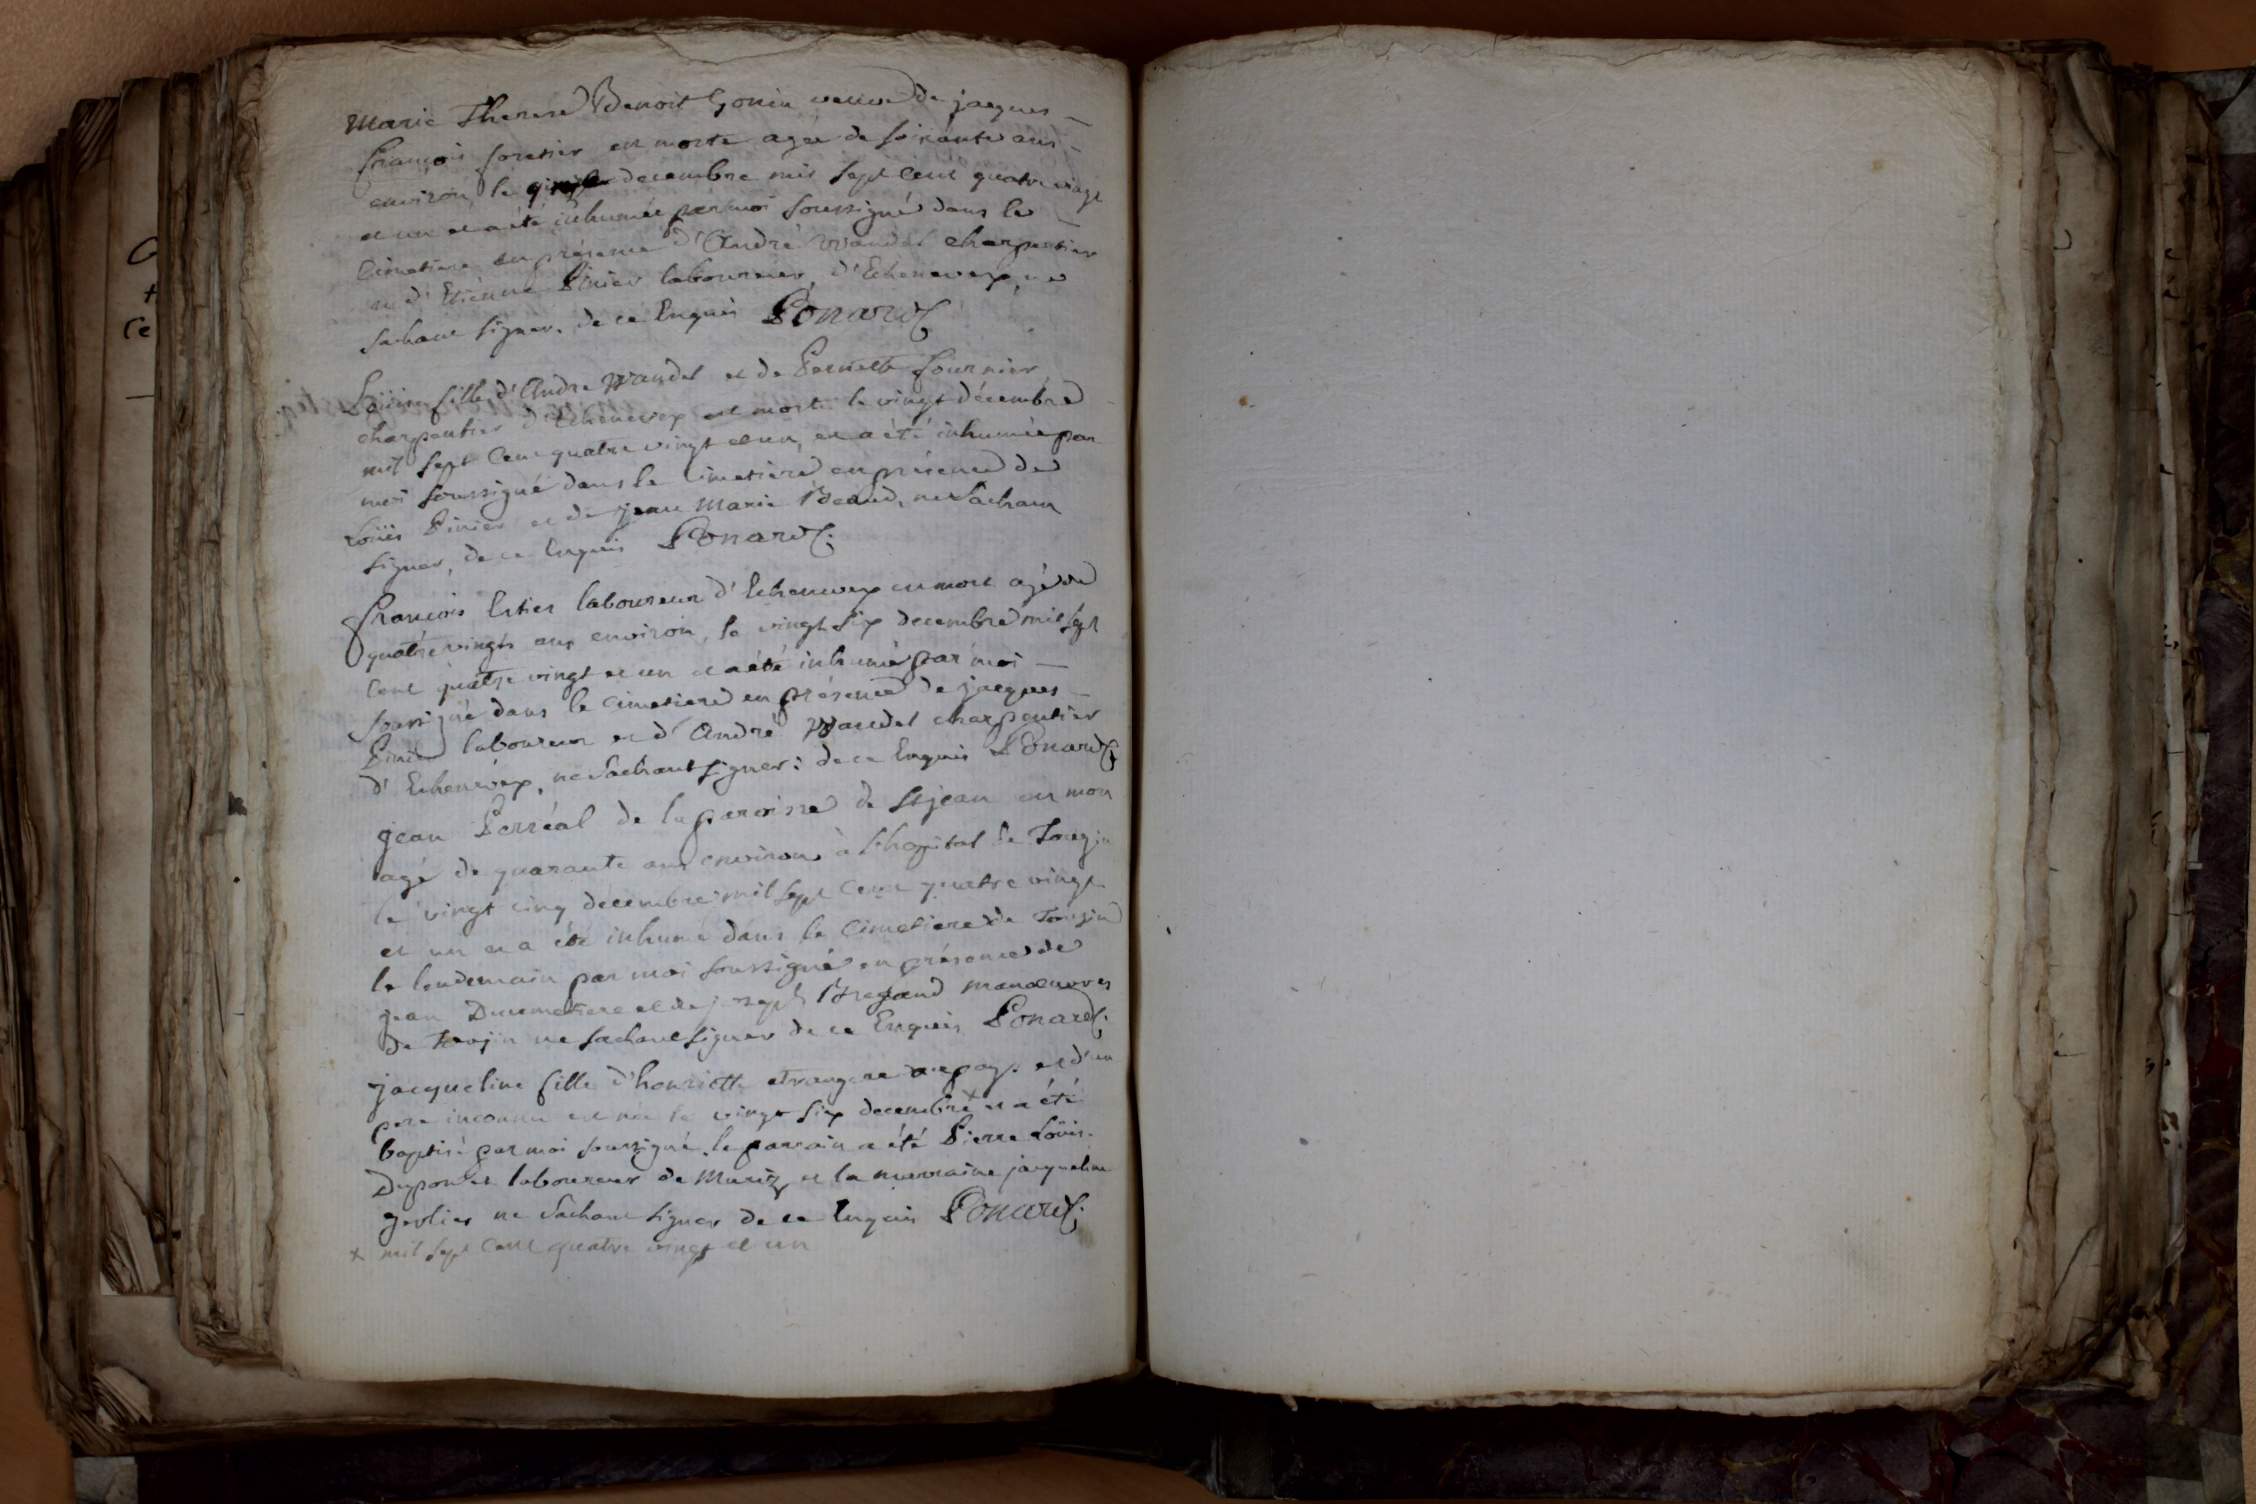 Marie Therese Benoit Gonin veuve de jacques
françois foresier est morte agée de soixante ans
environ, le decembre mil sept cent quatre vingt
et un et a été inhumée par moi soussigné dans le
cimetiere en présence d'André Wandel charpentier
et d'Etienne Pinier laboureur, d'Echenevex, ne
sachant signer. de ce Enquis Ponard
Loüise fille d'Andre Wandel et de Pernette fournier
charpentier d'Echenevex est morte le vingt décembre
mil sept cent quatre vingt et un, et a été inhumée par
moi soussigné dans le cimetiere en présence de
Loüis Pinier et de jean Marie Beaud, ne sachant
signer, de ce Enquis Ponard.
françois Estier laboureur d'Echenevex est mort agé de
quatre vingts ans environ, le vingt six decembre mil sept
cent quatre vingt et un et a été inhumé par moi
soussigné dans le cimetiere en présence de jacques
Pinier laboureur et d'André Wandel charpentier
d'Echenevex, ne sachant signer: de ce Enquis Ponard
jean Perréal de la paroisse de St jean est mort
agé de quarante ans environ à l'hopital de Tougin
le vingt cinq décembre mil sept cent quatre vingt
et un et a été inhumé dans le cimetiere de Tougin
le lendemain par moi soussigné en présence de
jean Ducimetiere et de joseph Bregand manœuvres
de Tougin ne sachant signer de ce Enquis Ponard.
jacqueline fille d'henriette etrangere au pays et d'un
pere inconnu est née le vingt six decembre x et a été
baptisé par moi soussigné. le parrain a été Pierre Loüis
Dupont laboureur de Muriz et la marraine jacqueline
ne sachant signer de ce Enquis Ponard.
x mil sept cent quatre vingt et un